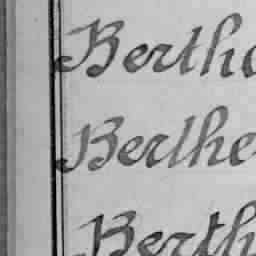 Bertha
Berthe
Berth